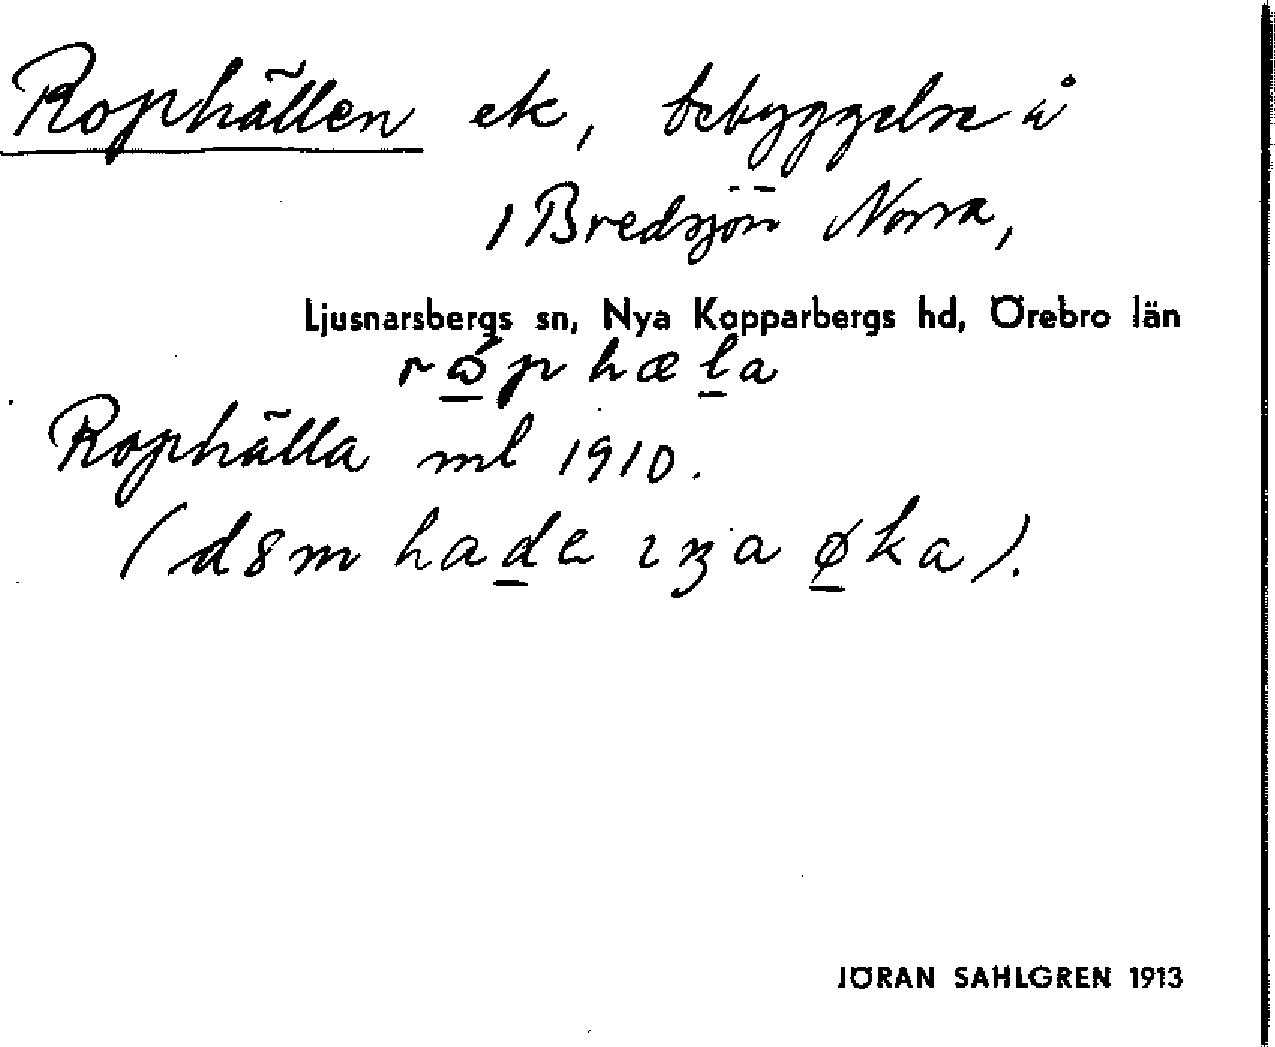 Rophällen ek, bebyggelse å
1 Bredsjön Norra,
Ljusnarsbergs sn, Nya Kopparbergs hd, Örebro län
Rophälla ml 1910.
JÖRAN SAHLGREN 1913